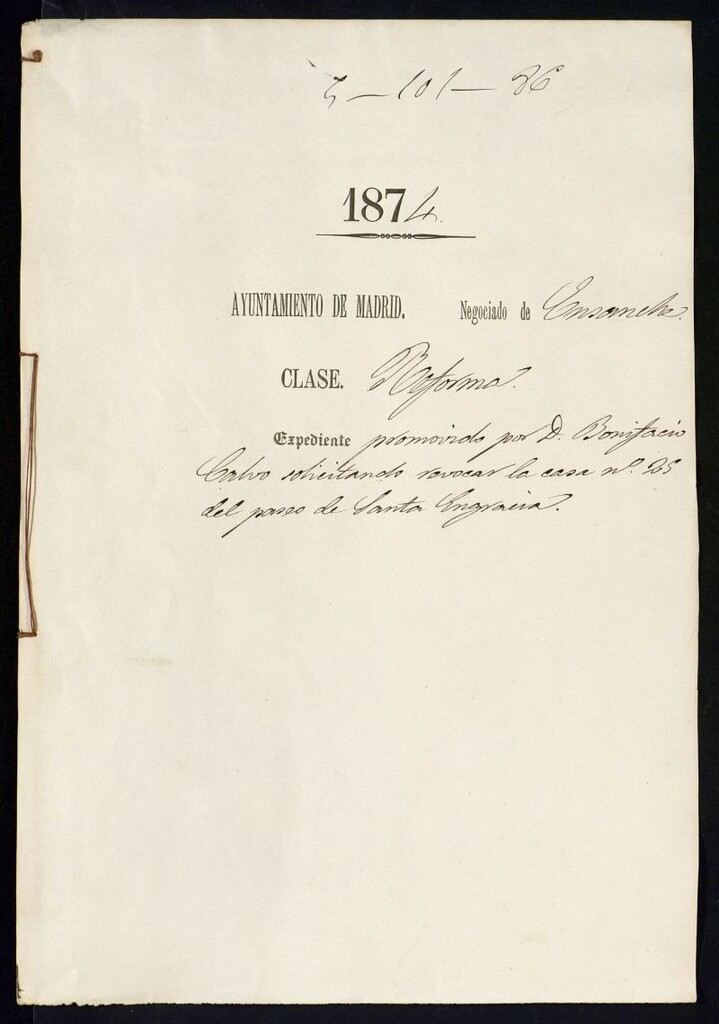 5-101-86
1874.
AYUNTAMIENTO DE MADRID. Negociado de Ensanche.
CLASE. Reforma.
Expediente promovido por D. Bonifacio
Calvo solicitando revocar la casa nº. 25
del paseo de Santa Engracia.